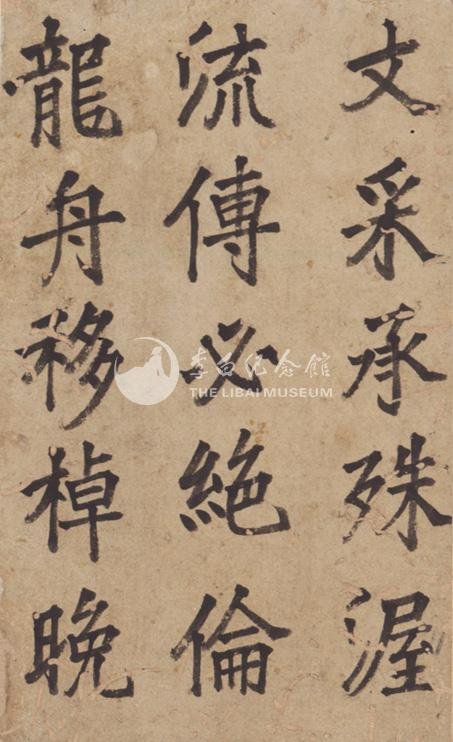 文采承殊渥
流傳必絕倫
龍舟移棹晚
李白纪念馆
THE LIBAI MUSEUM